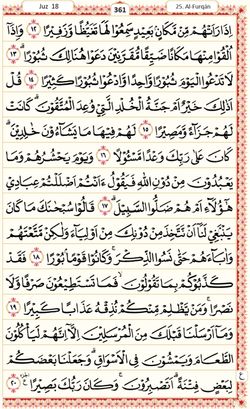 Juz 18
361
25. Al-Furqān
إِذَا رَأَتْهُمْ مِنْ مَكَانٍ بَعِيدٍ سَمِعُوا لَهَا تَغَيُّظًا وَزَفِيرًا ١٢ وَإِذَا
أُلْقُوا مِنْهَا مَكَانًا ضَيِّقًا مُقَرَّنِينَ دَعَوْا هُنَالِكَ ثُبُورًا ١٣
لَا تَدْعُوا الْيَوْمَ ثُبُورًا وَاحِدًا وَادْعُوا ثُبُورًا كَثِيرًا ١٤ قُلْ
أَذَلِكَ خَيْرٌ أَمْ جَنَّةُ الْخُلْدِ الَّتِي وُعِدَ الْمُتَّقُونَ كَانَتْ
لَهُمْ جَزَاءً وَمَصِيرًا ١٥ لَهُمْ فِيهَا مَا يَشَاءُونَ خَالِدِينَ
كَانَ عَلَى رَبِّكَ وَعْدًا مَسْئُولًا ١٦ وَيَوْمَ يَحْشُرُهُمْ وَمَا
يَعْبُدُونَ مِنْ دُونِ اللَّهِ فَيَقُولُ ءَأَنْتُمْ أَضْلَلْتُمْ عِبَادِي
هَؤُلَاءِ أَمْ هُمْ ضَلُّوا السَّبِيلَ ١٧ قَالُوا سُبْحَانَكَ مَا كَانَ
يَنْبَغِي لَنَا أَنْ نَتَّخِذَ مِنْ دُونِكَ مِنْ أَوْلِيَاءَ وَلَكِنْ مَتَّعْتَهُمْ
وَءَابَاءَهُمْ حَتَّى نَسُوا الذِّكْرَ وَكَانُوا قَوْمًا بُورًا ١٨ فَقَدْ
كَذَّبُوكُمْ بِمَا تَقُولُونَ فَمَا تَسْتَطِيعُونَ صَرْفًا وَلَا
نَصْرًا وَمَنْ يَظْلِمْ مِنْكُمْ نُذِقْهُ عَذَابًا كَبِيرًا ١٩
وَمَا أَرْسَلْنَا قَبْلَكَ مِنَ الْمُرْسَلِينَ إِلَّا إِنَّهُمْ لَيَأْكُلُونَ
الطَّعَامَ وَيَمْشُونَ فِي الْأَسْوَاقِ وَجَعَلْنَا بَعْضَكُمْ
لِبَعْضٍ فِتْنَةً أَتَصْبِرُونَ وَكَانَ رَبُّكَ بَصِيرًا ٢٠